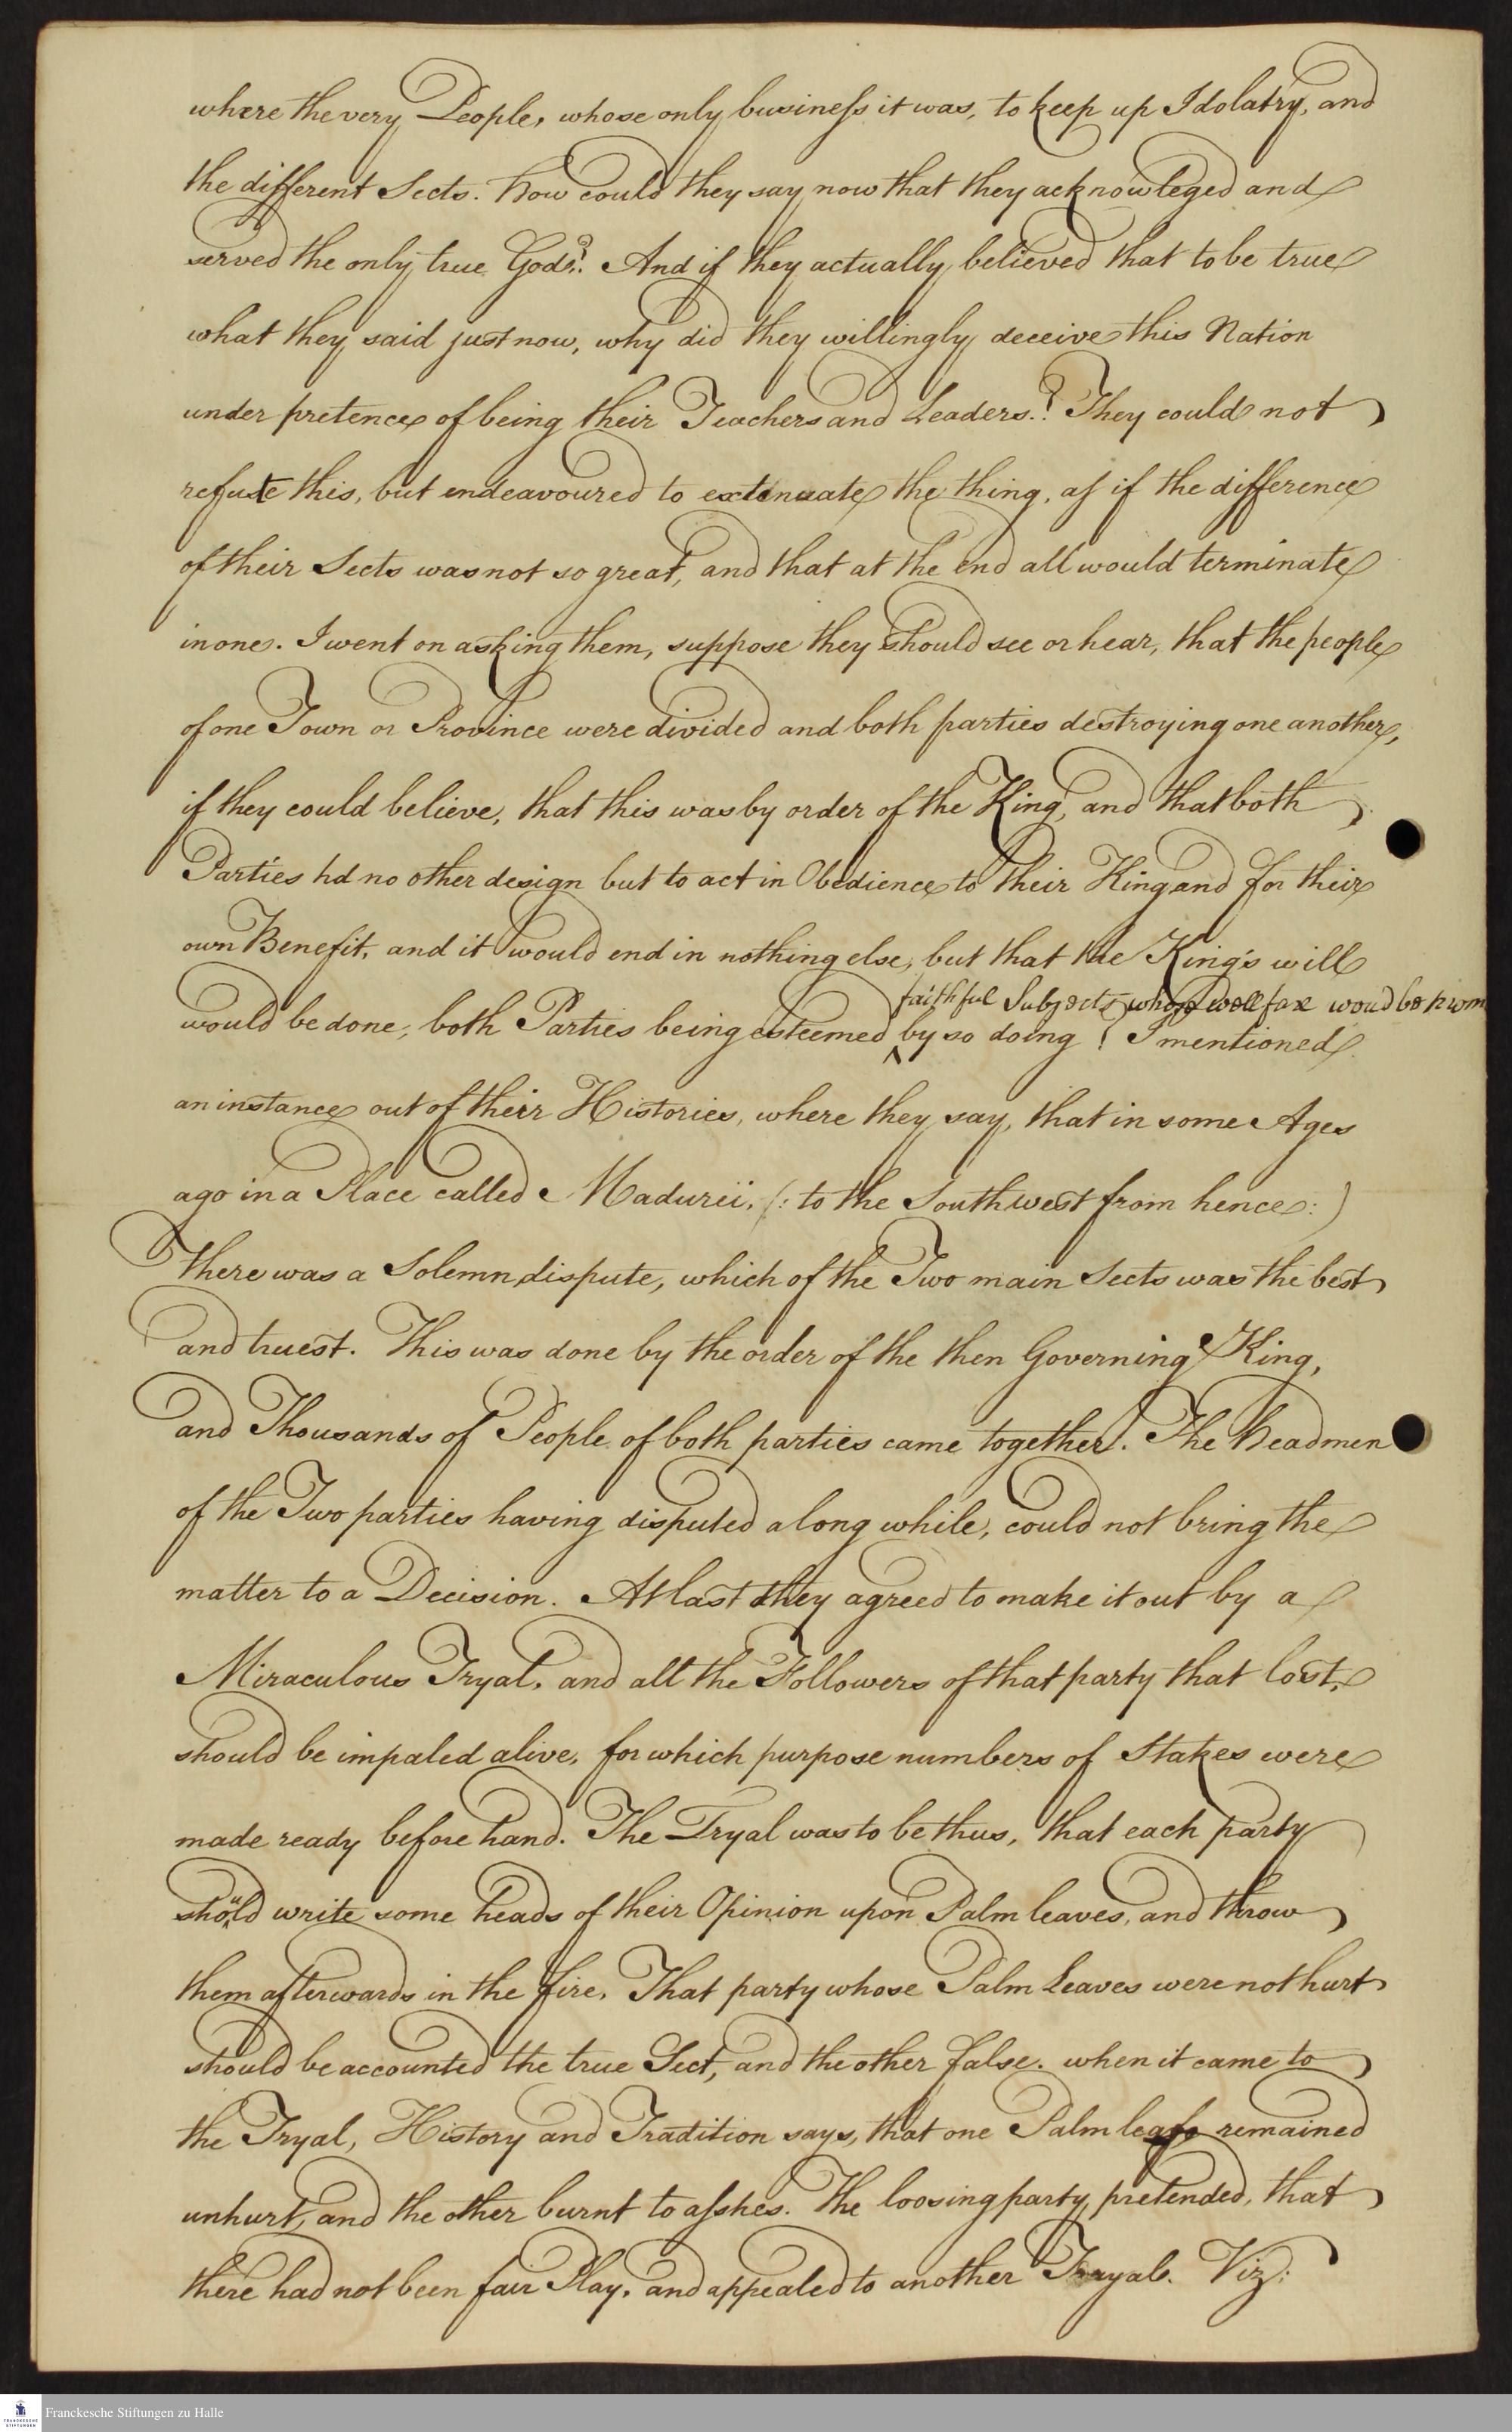 where the very People, whose only business it was, to keep up Idolatry, and
the different Sects. How could they say now that they acknowleged and
served the only true God?. And if they actually believed that to be true
what they said just now, why did they willingly deceive this Nation
under pretence of being their Teachers and Leaders.? They could not
refute this, but endeavoured to extenuate the thing, as if the difference
of their Sects was not so great, and that at the end all would terminate
in one. I went on asking them, suppose they should see or hear, that the people
of one Town or Province were divided and both parties destroying one another,
if they could believe, that this was by order of the King, and that both
Parties hd no other design but to act in Obedience to their King and for their
own Benefit, and it would end in nothing else, but that the King's will
faithful Subjects whose wellfare woud be
would be done, both Parties being esteemed by so doing? I mentioned
an instance out of their Histories, where they say, that in some Ages
ago in a Place called Madureii, (: to the Southwest from hence :)
There was a Solemn dispute, which of the Two main Sects was the best
and truest. This was done by the order of the then Governing King,
and Thousands of People of both parties came together. The Headmen
of the Two parties having disputed a long while, could not bring the
matter to a Decision. At last they agreed to make it out by a
Miraculous Tryal, and all the Followers of that party that lost,
should be impaled alive, for which purpose numbers of Stakes were
made ready before hand. The Tryal was to be thus, that each party
shoŭld write some heads of their Opinion upon Palm leaves, and throw
them afterwards in the fire. That party whose Palm Leaves were not hurt
should be accounted the true Sect, and the other false. when it came to
the Tryal, History and Tradition says, that one Palm leafe remained
unhurt, and the other burnt to asshes. The loosing party pretended, that
there had not been fair Play, and appealed to another Trayal. Viz:
Franckesche Stiftungen zu Halle